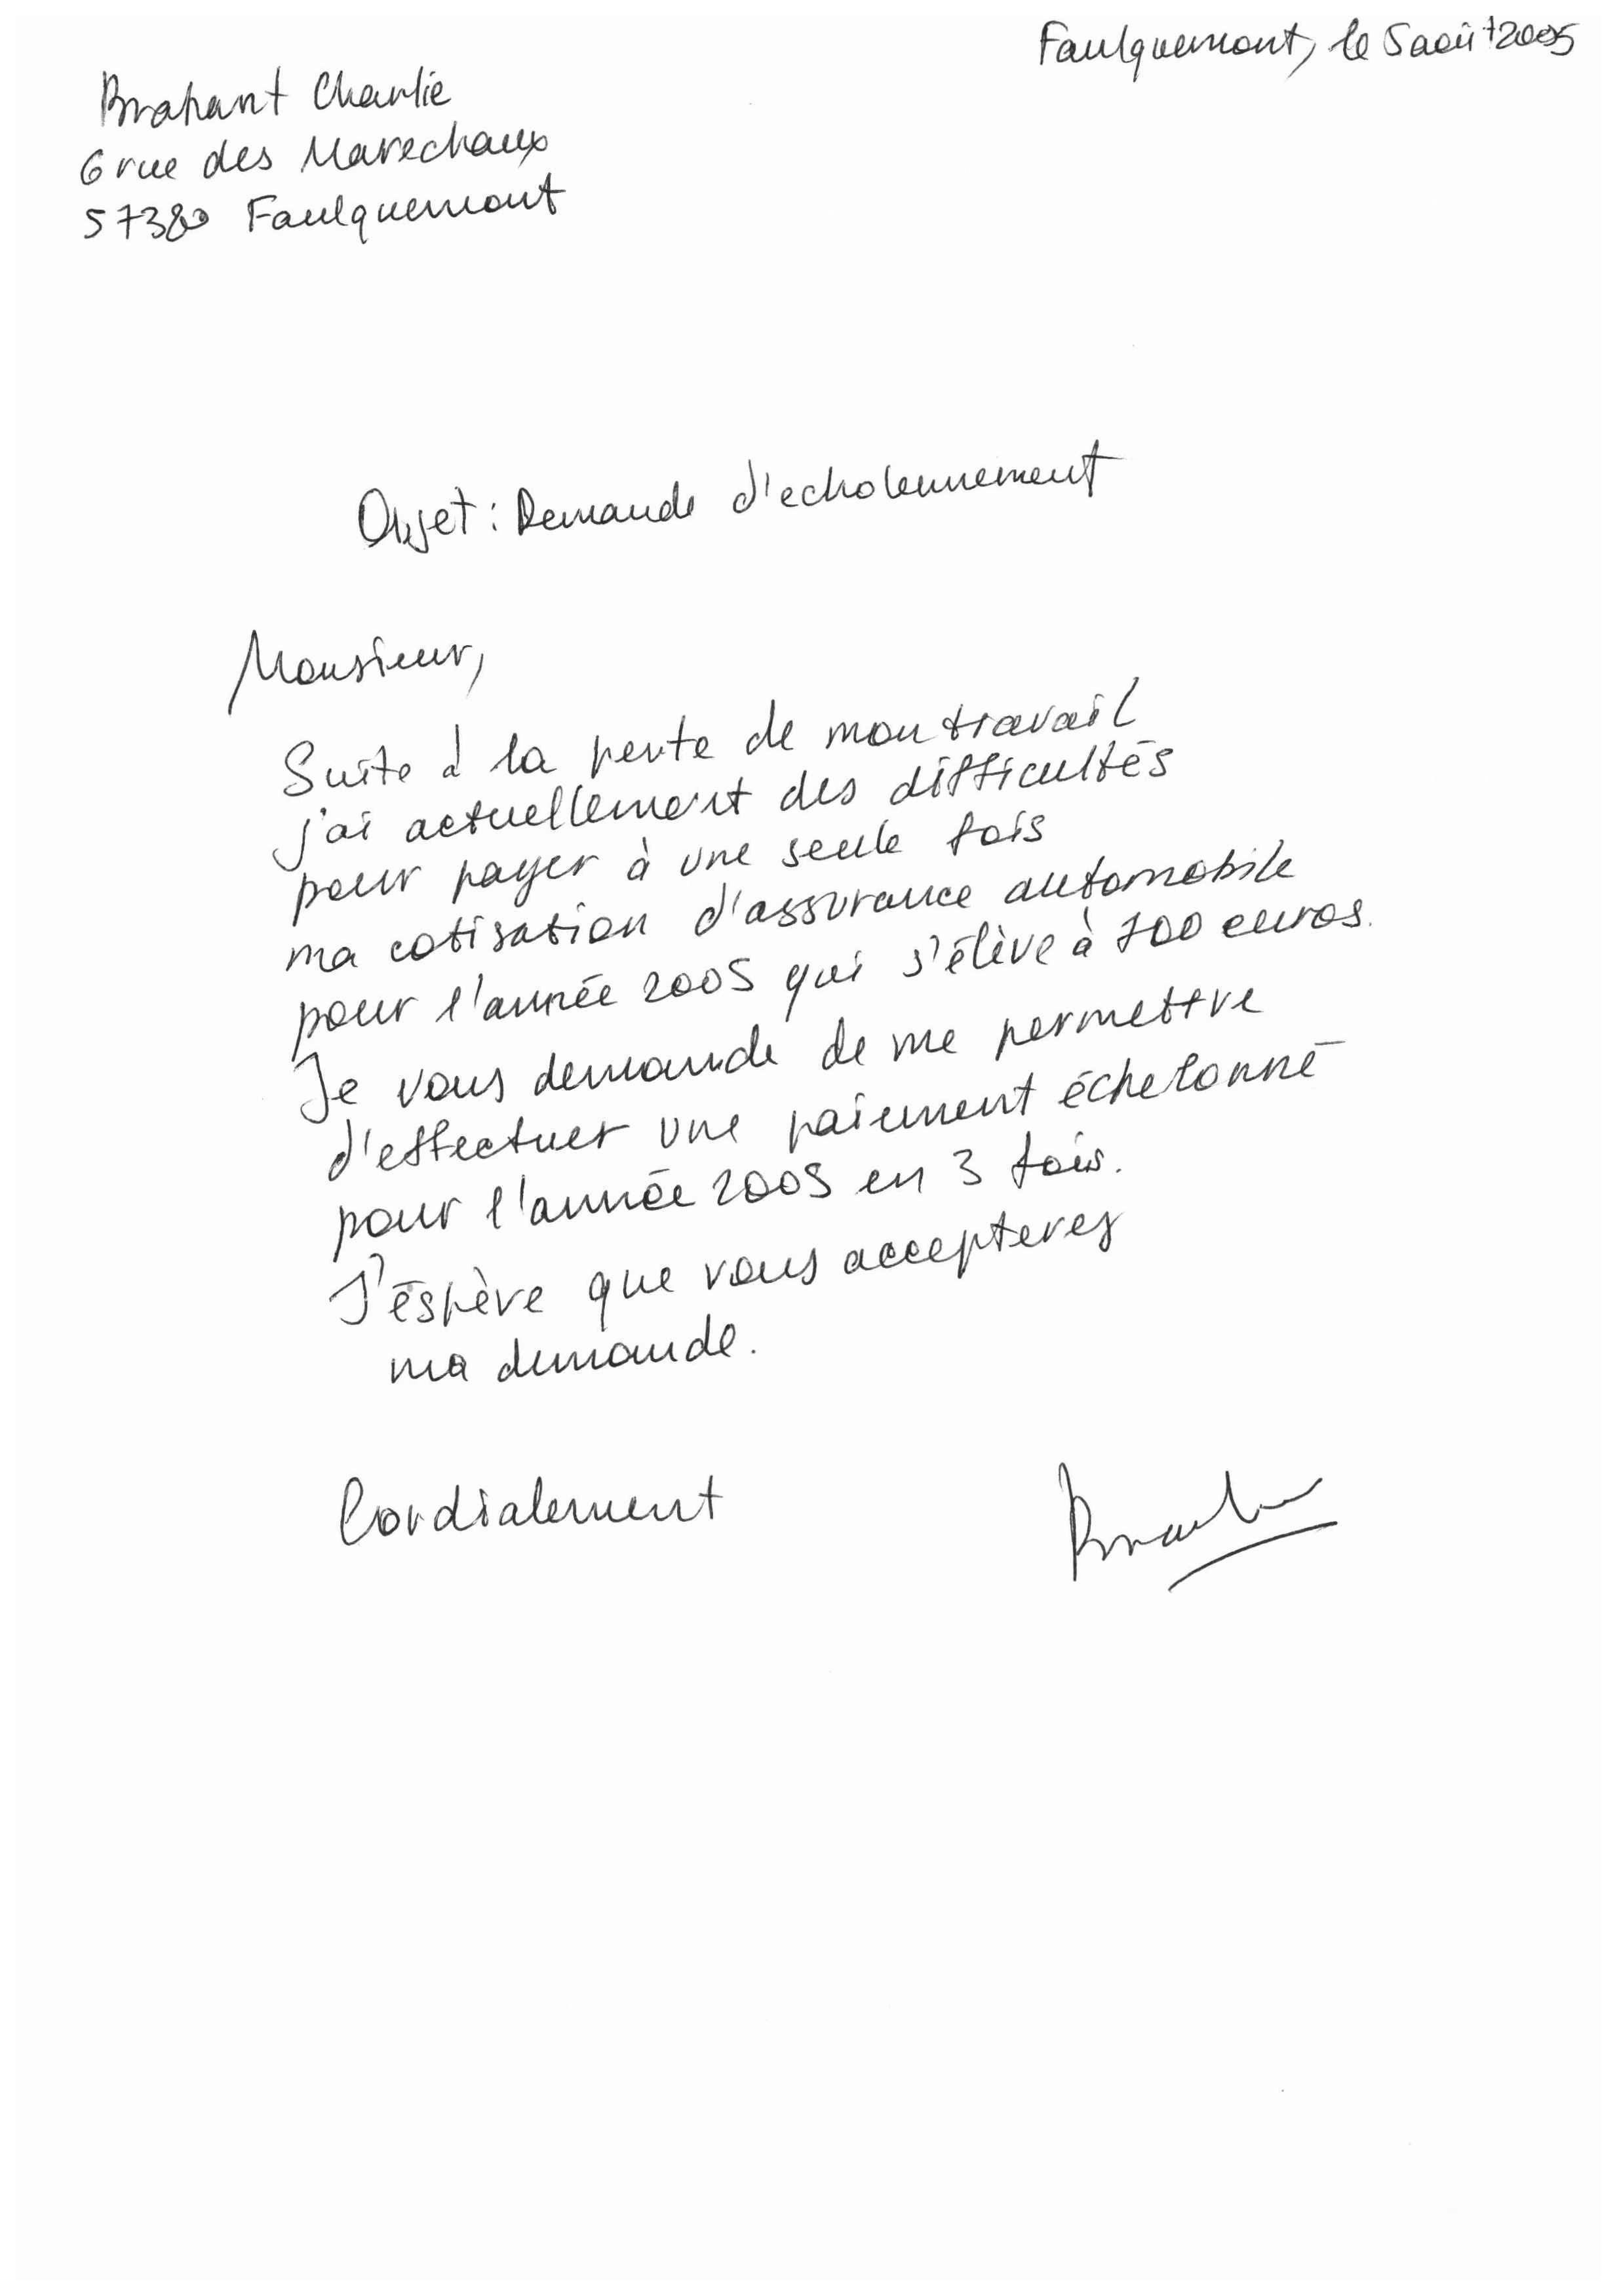 Faulquemont, le 5 août 2005
Brahant Charlie
6 rue des Marechaux
57380 Faulquemont
Objet : Demande d'echolennement
Monsieur,
Suite à la perte de mon travail
j'ai actuellement des difficultés
pour payer à une seule fois
ma cotisation d'assurance automobile
pour l'année 2005 qui s'élève à 700 euros.
Je vous demande de me permettre
d'effectuer une paiement échelonné
pour l'année 2005 en 3 fois.
J'éspère que vous accepterez
ma demande.
Cordialement